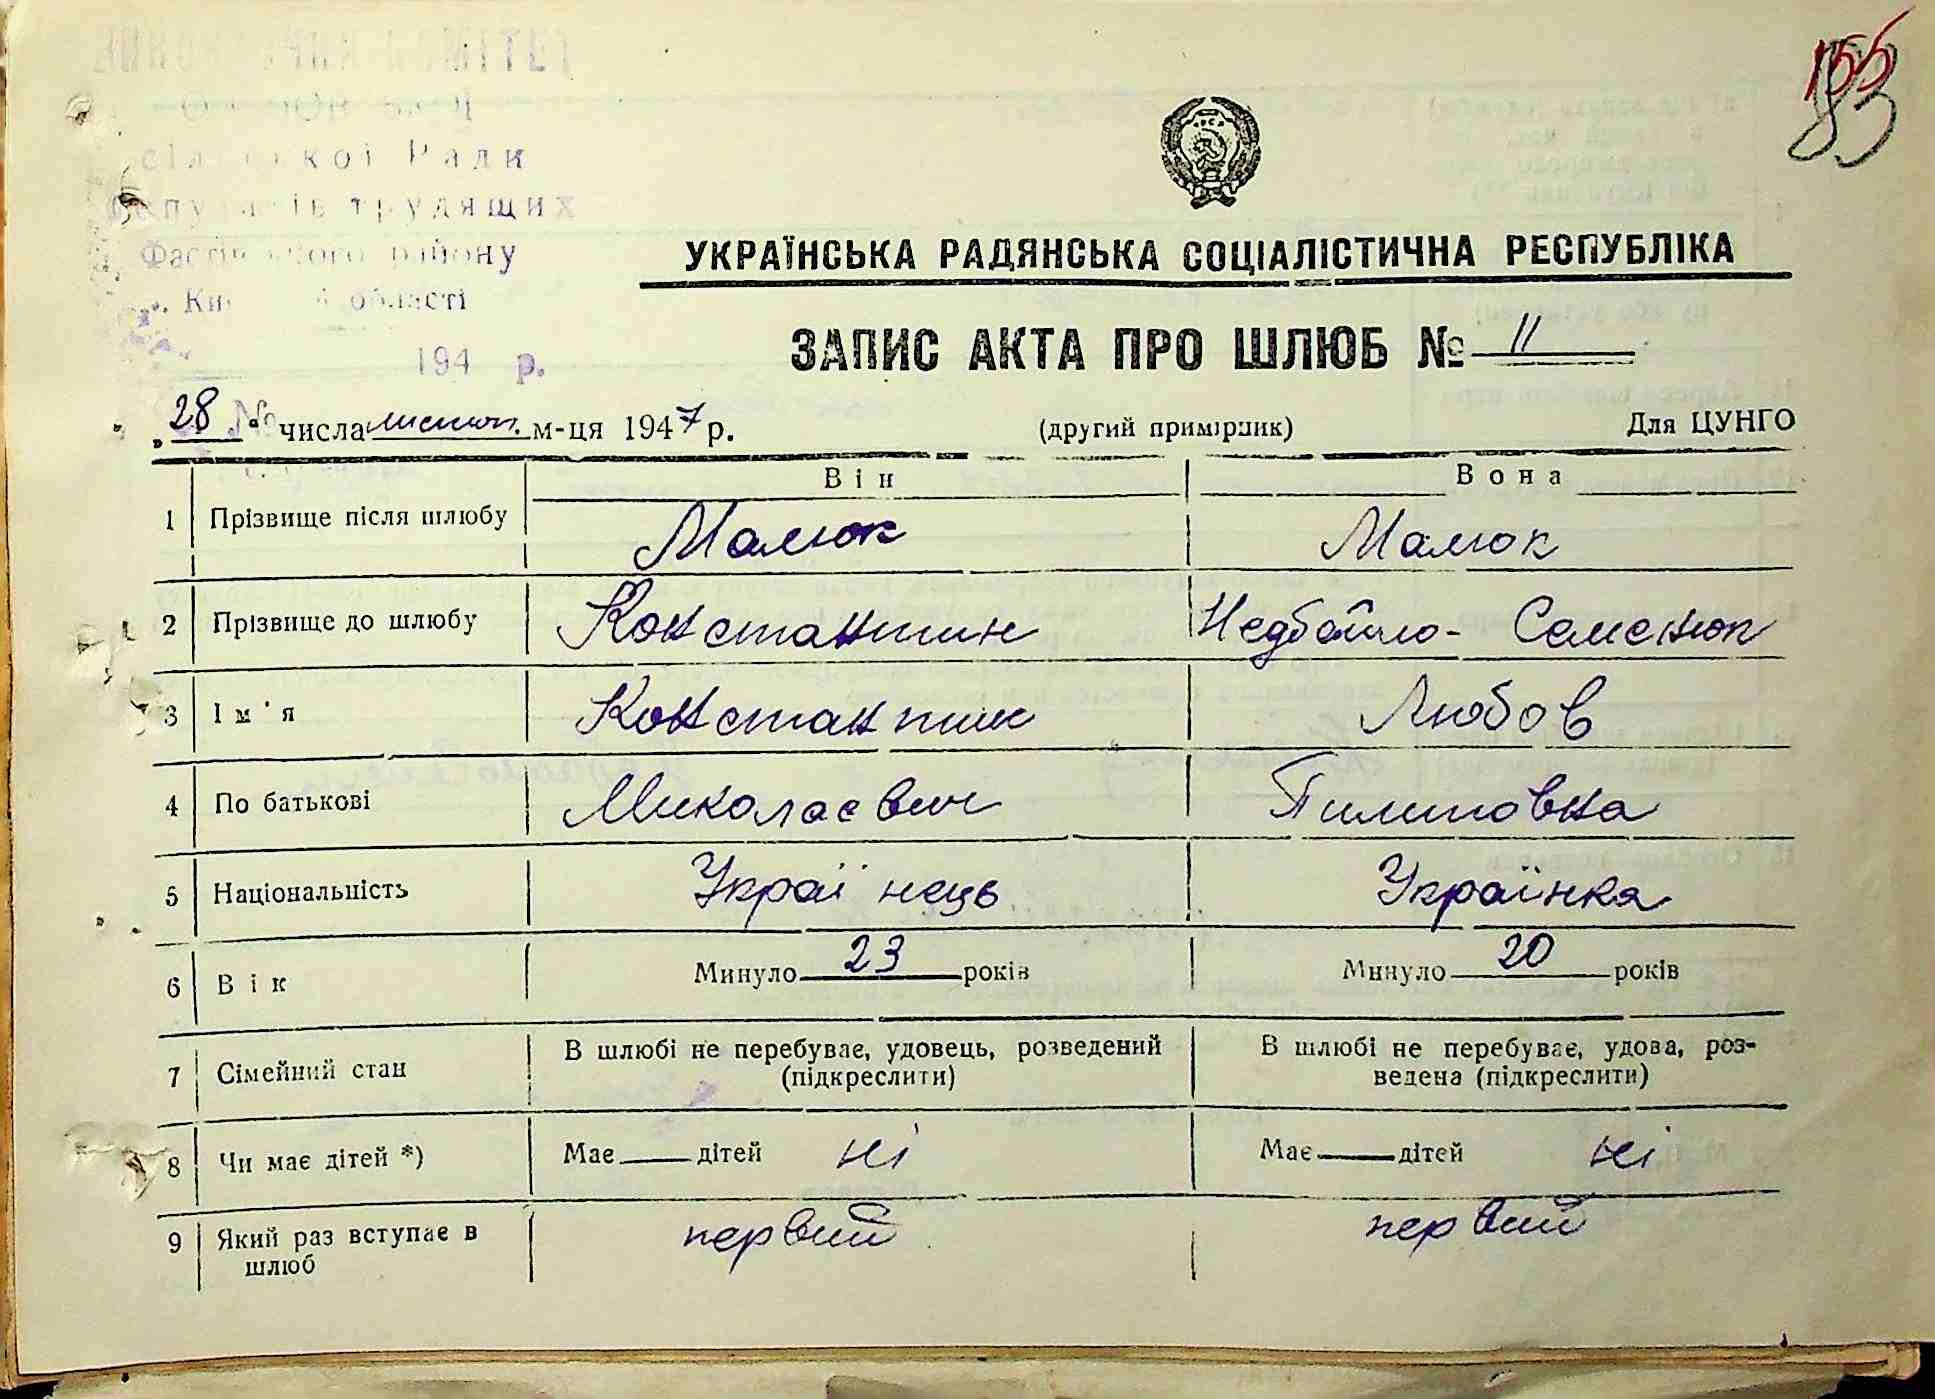 155
83
сільської Ради
депутатів трудящих
Фастівського району
Київської області
194 р.
УКРАЇНСЬКА РАДЯНСЬКА СОЦІАЛІСТИЧНА РЕСПУБЛІКА
ЗАПИС АКТА ПРО ШЛЮБ № 11
„28" числа листоп. м-ця 1947 р. (другий примірник) Для ЦУНГО
Він Вона
1 Прізвище після шлюбу Малюк Малюк
2 Прізвище до шлюбу Константин Недбайло- Семенюк
3 Ім'я Константин Любов
4 По батькові Миколаєвич Пилиповна
5 Національність Украї нець Українка
6 Вік Минуло 23 років Минуло 20 років
7 Сімейний стан В шлюбі не перебуває, удовець, розведений В шлюбі не перебуває, удова, роз-
(підкреслити) ведена (підкреслити)
8 Чи має дітей *) Має — дітей ні Має — дітей ні
9 Який раз вступає в первий первий
шлюб